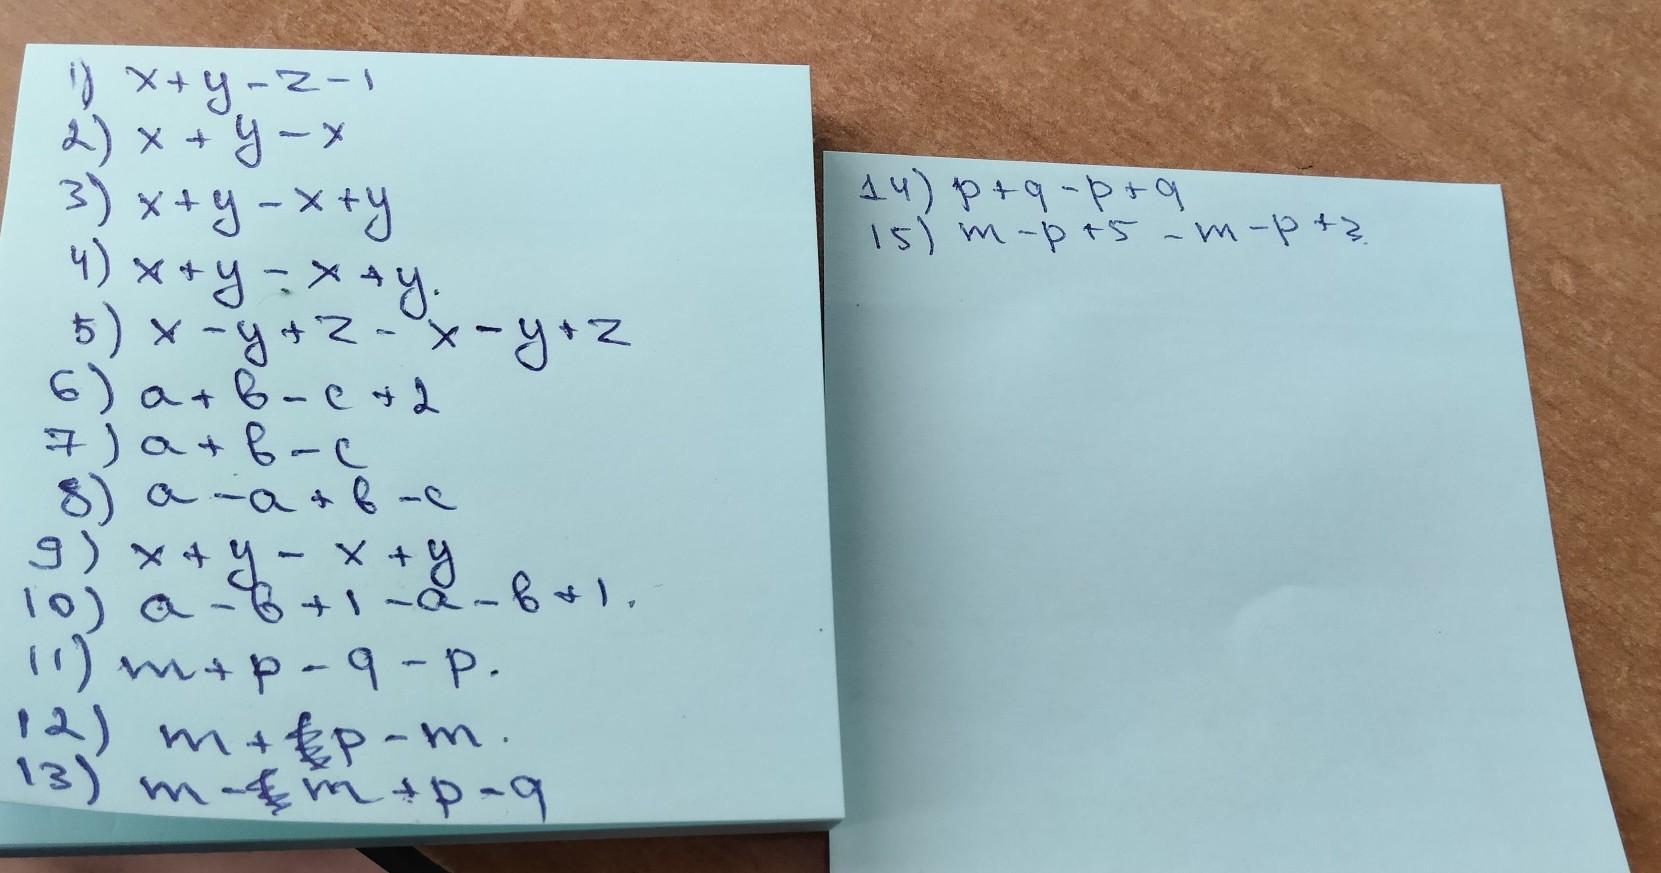 1) x+y-z-1
2) x+y-x
3) x+y-x+y
4) x+y-x+y.
5) x-y+z-x-y+z
6) a+b-c+2
7) a+b-c
8) a-a+b-c
9) x+y-x+y
10) a-b+1-a-b+1.
11) m+p-q-p.
12) m+p-m.
13) m-m+p-q
14) p+q-p+q
15) m-p+5-m-p+3.